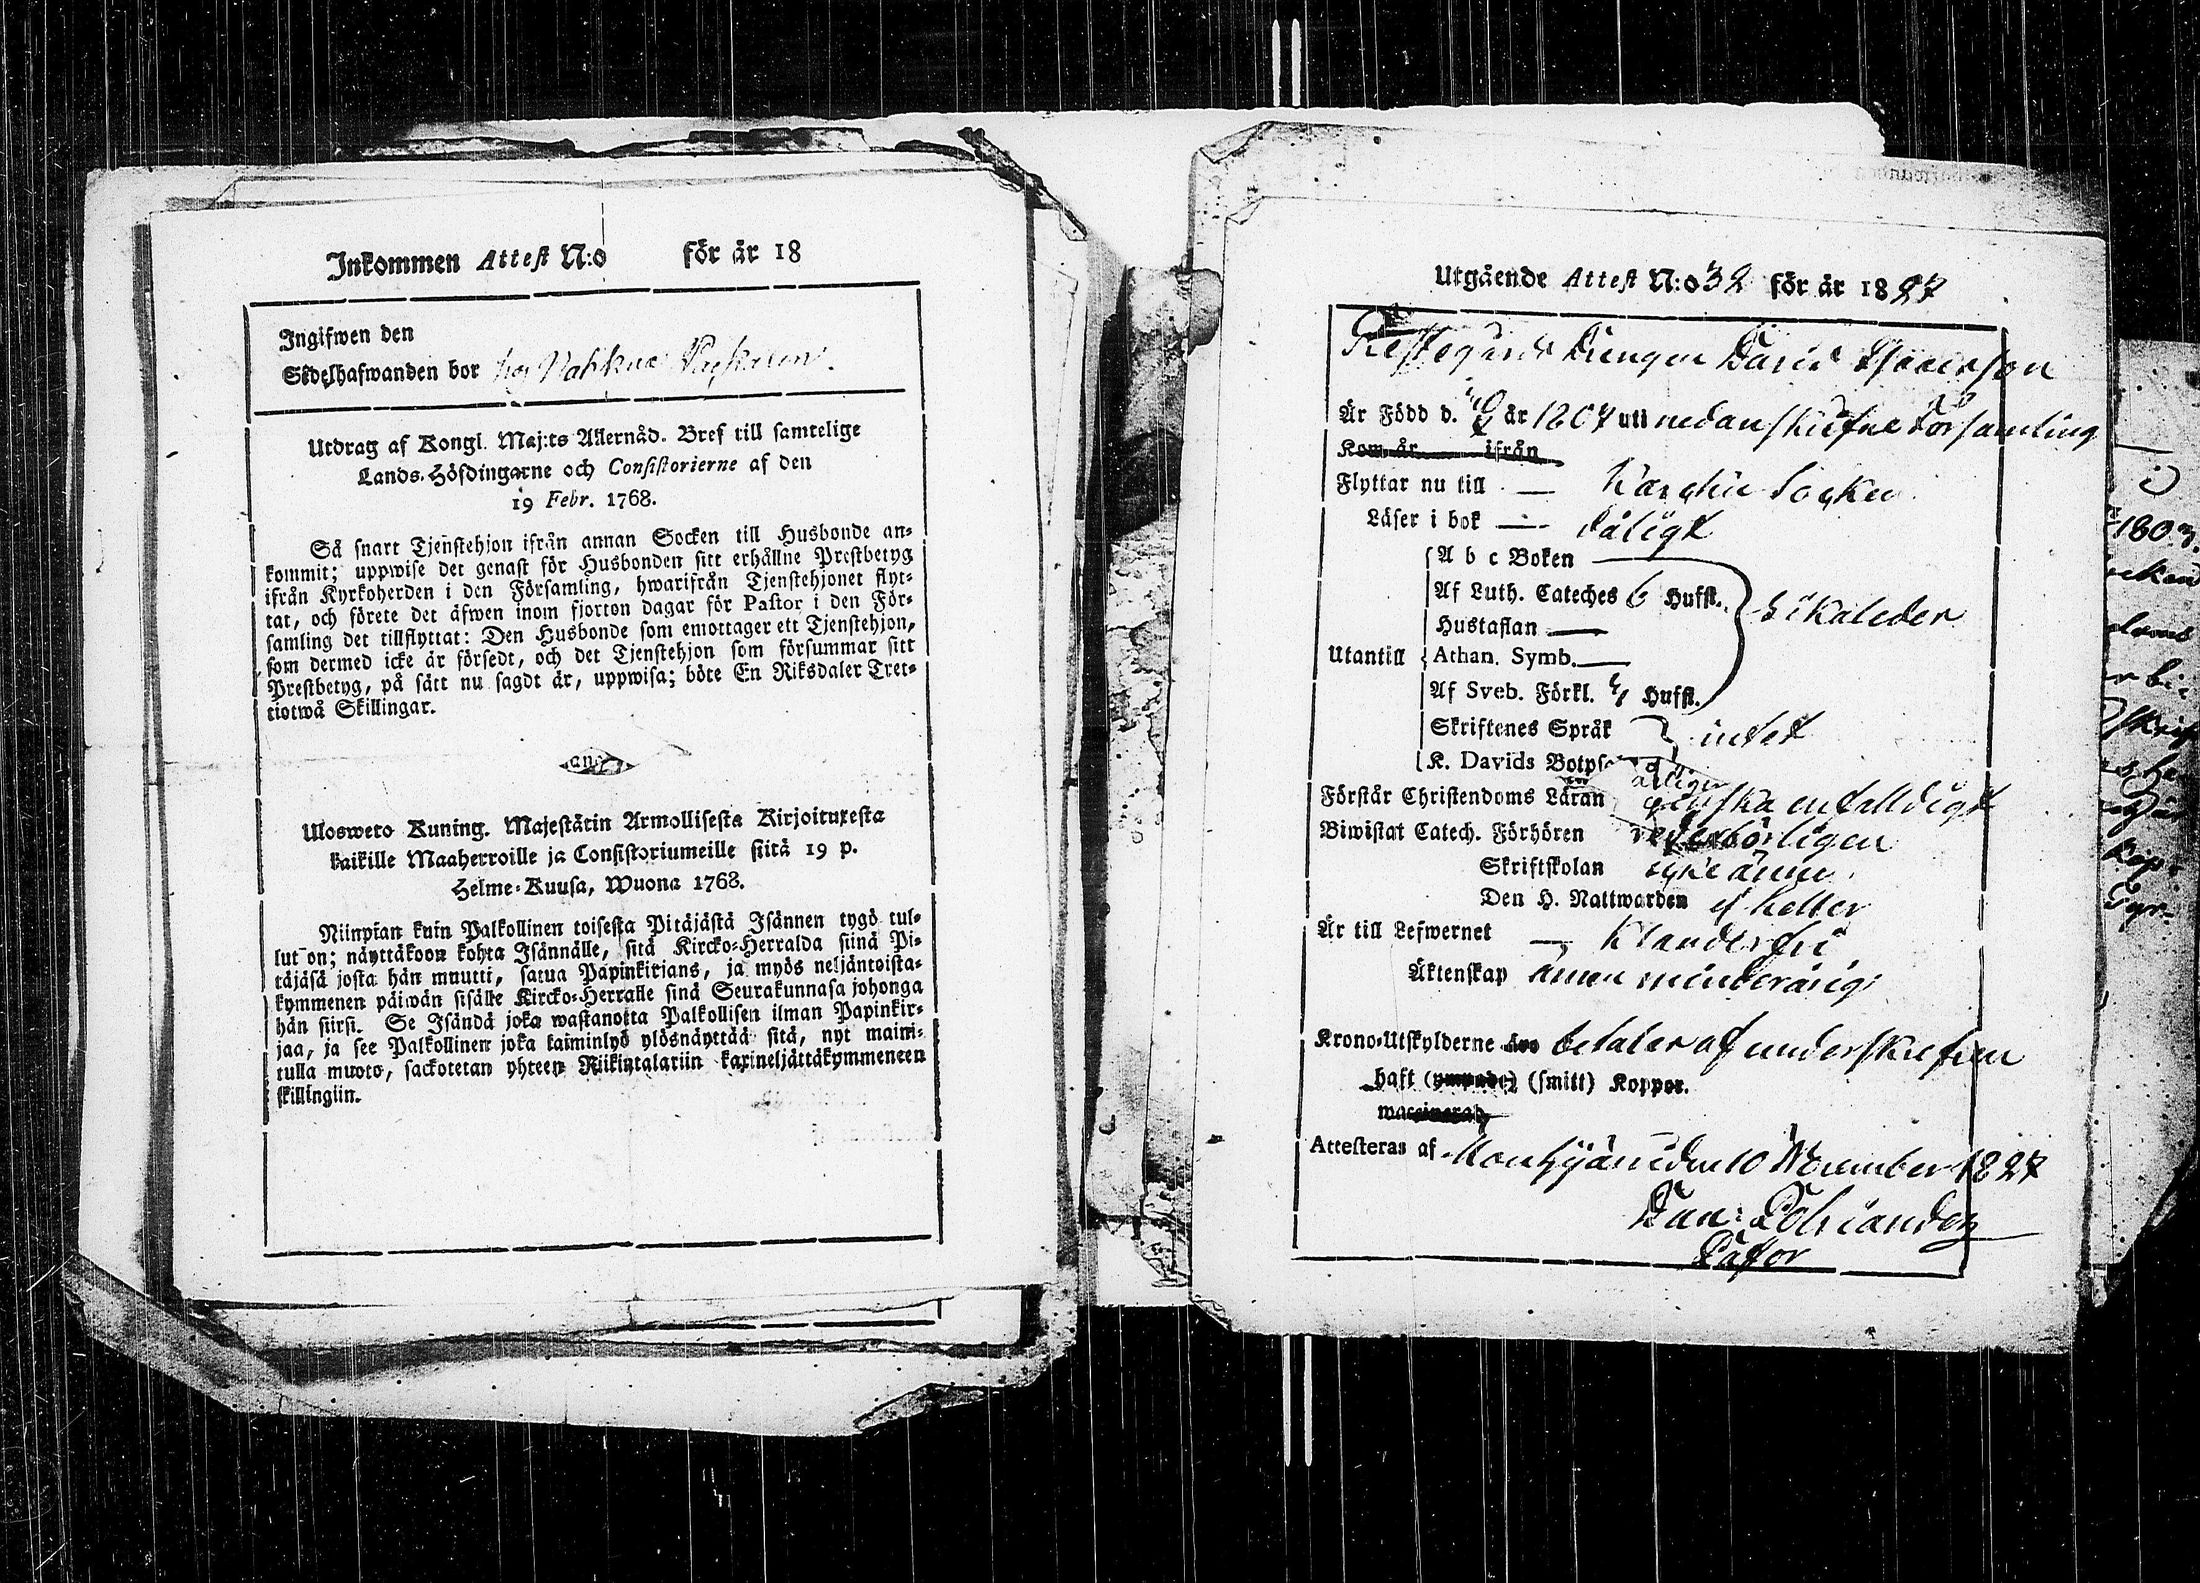 Inkommen Attest N:o för år 18
Ingifwen den
Sedelhafwanden bor hos
Utdrag af Kongl. Maj:ts Allernåd. Bref till samtelige
Lands-Höfdingarne och Consistorierne af den
19 Febr. 1768.
Så snart Tjenstehjon ifrån annan Socken till Husbonde an-
kommit; uppwise det genast för Husbonden sitt erhållne Prestbetyg
ifrån Kyrkoherden i den Församling, hwarifrån Tjenstehjonet flyt-
tat, och förete det äfwen inom fjorton dagar för Pastor i den För-
samling det tillflyttat: Den Husbonde som emottager ett Tjenstehjon,
som dermed icke är försedt, och det Tjenstehjon som försummar sitt
Prestbetyg, på sätt nu sagdt är, uppwisa; böte En Riksdaler Tret-
tiotwå Skillingar.
Ulosweto Kuning. Majestätin Armollisesta Kirjoituxesta
kaikille Maaherroille ja Consistoriumeille siitä 19 p.
Helme-Kuusa, Wuona 1768.
Niinpian kuin Palkollinen toisesta Pitäjästä Isännen tygö tul-
lut on; näyttäköön kohta Isännälle, sitä Kircko-Herralda siinä Pi-
täjäsä josta hän muutti, saatua Papinkirjans, ja myös neljäntoista-
kymmenen päiwän sisälle Kircko-Herralle sinä Seurakunnasa johonga
hän siirsi. Se Isändä joka wastanotta Palkollisen ilman Papinkir-
jaa, ja see Palkollinen joka laiminlyö ylösnäyttää sitä, nyt maini-
tulla muoto, sackotetan yhteen Riikintalariin kaxineljättäkymmeneen
skillingiin.
Utgående Attest N:o 32 för år 1827
Drängen David
Är Född d. år 1807 uti nedanskrefne Församling
Kom år ifrån
Flyttar nu till — Socken
Läser i bok — dåligt
A b c Boken
Af Luth. Cateches 6 Hufst. likaledes
Hustaflan
Utantill Athan. Symb.
Af Sveb. Förkl. Hufst.
Skriftenes Språk intet
K. Davids Botps
Förstår Christendoms Läran ganska enfalldigt
Biwistat Catech. Förhören wederbörligen
Skriftskolan icke ännu
Den H. Nattwarden ej heller
Är till Lefwernet — klanderfri
Äktenskap ännu minderårig
Krono-Utskylderne äro betalar af underskrefven
haft (ympade) (smitt) Koppor.
waccinerad
Attesteras af den 10 November 1827
Dan:
Pastor
1803